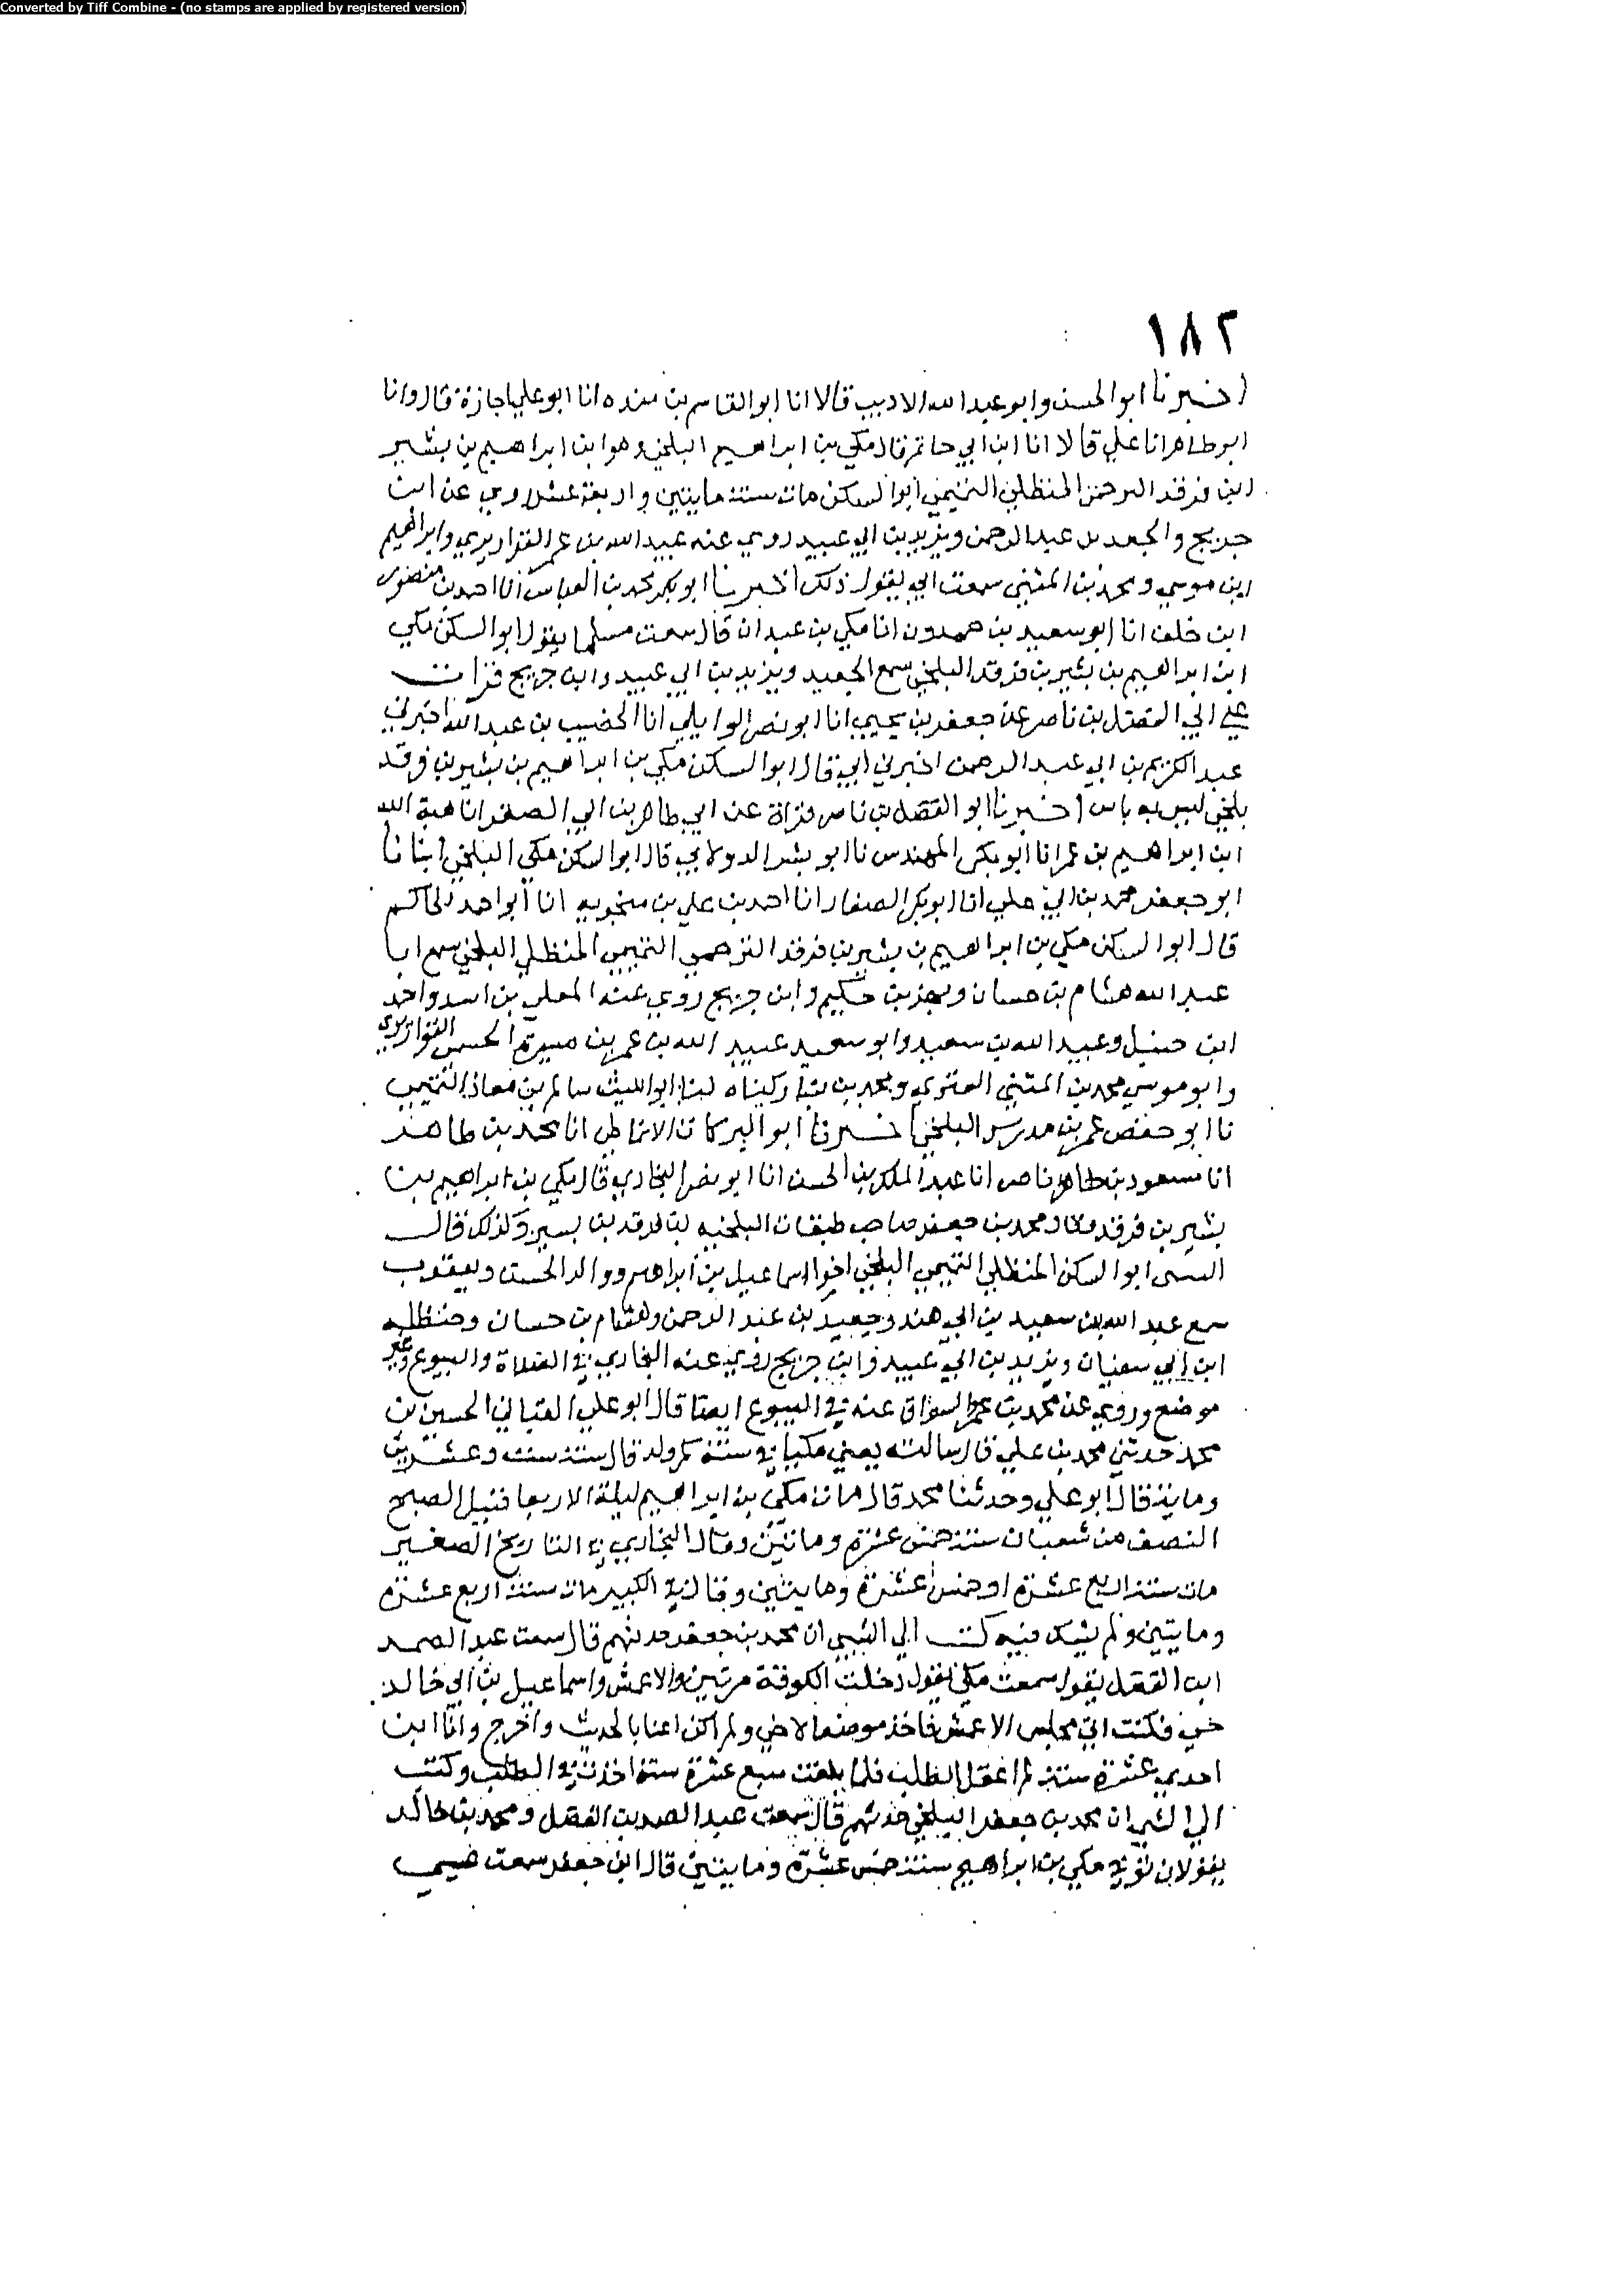 Converted by Tiff Combine - (no stamps are applied by registered version)
١٨٢
اخبرنا ابو الحسن وابو عبد الله الاديب قالا انا ابو القاسم بن منده انا ابو علي اجازة قال وانا
ابو طاهر انا علي قالا انا ابن ابي حاتم قال مكي بن ابراهيم البلخي وهو ابن ابراهيم بن بشير
ابن فرقد البرجمي الحنظلي التميمي ابو السكن مات سنة مايتين واربعة عشر روي عن ابن
جريج والجعد بن عبد الرحمن ويزيد بن ابي عبيد روي عنه عبيد الله بن عمر القواريري وابراهيم
ابن موسي ومحمد بن المثني سمعت ابي يقول ذلك اخبرنا ابو بكر محمد بن العباس انا احمد بن منصور
ابن خلف انا ابو سعيد بن حمدون انا مكي بن عبدان قال سمعت مسلما يقول ابو السكن مكي
ابن ابراهيم بن بشير بن فرقد البلخي سمع الجعيد ويزيد بن ابي عبيد وابن جريج قرات
علي ابي الفضل بن ناصر عن جعفر بن يحيي انا ابو نصر الوايلي انا الخصيب بن عبد الله اخبرني
عبد الكريم بن ابي عبد الرحمن اخبرني ابي قال ابو السكن مكي بن ابراهيم بن بشير بن فرقد
بلخي ليس به باس اخبرنا ابو الفضل بن ناصر قراة عن ابي طاهر بن ابي الصقر انا هبة الله
ابن ابراهيم بن عمر انا ابو بكر المهندس نا ابو بشر الدولابي قال ابو السكن مكي البلخي انبانا
ابو جعفر محمد بن ابي علي انا ابو بكر الصفار انا احمد بن علي بن منجويه انا ابو احمد الحاكم
قال ابو السكن مكي بن ابراهيم بن بشير بن فرقد البرجمي التميمي الحنظلي البلخي سمع ابا
عبد الله هشام بن حسان وبهز بن حكيم وابن جريج روي عنه المعلي بن اسد واحمد
ابن حنبل وعبيد الله بن سعيد وابو سعيد عبيد الله بن عمر بن ميسرة الجشمي القواريري
وابو موسي محمد بن المثني العنزي ومحمد بن بشار كناه لنا ابو الليث سالم بن معاذ التميمي
نا ابو حفص عمر بن مدرس البلخي اخبرنا ابو البركات الانماطي انا محمد بن طاهر
انا مسعود بن ناصر انا عبد الملك بن الحسن انا ابو نصر البخاري قال مكي بن ابراهيم بن
بشير بن فرقد وقال محمد بن جعفر صاحب طبقات البلخيه بن فرقد بن بشير وكذلك قال
ابو السكن الحنظلي التميمي البلخي اخوا اسماعيل بن ابراهيم ووالد الحسن ويعقوب
سمع عبد الله بن سعيد بن ابي هند وجعيد بن عبد الرحمن وهشام بن حسان وحنظله
ابن ابي سفيان ويزيد بن ابي عبيد وابن جريج روي عنه البخاري في الصلاة والبيوع وغير
موضع وروي عن محمد بن عمرو السواق عنه في البيوع ايضا قال ابو علي الحسين بن
محمد حدثني محمد بن علي قال سالته يعني مكيا في سنة كم ولد قال سنة ست وعشرين
وماية قال ابو علي وحدثنا محمد قال مات مكي بن ابراهيم ليلة الاربعا قبيل الصبح
النصف من شعبان سنة خمس عشرة ومائتين وقال البخاري في التاريخ الصغير
مات سنة اربع عشرة او خمس عشرة ومايتين وقال في الكبير مات سنة اربع عشرة
ومايتين ولم يشك فيه كتب الي ان محمد بن جعفر حدثهم قال سمعت عبد الصمد
ابن الفضل يقول سمعت مكي يقول دخلت الكوفة مرتين والاعمش واسماعيل بن ابي خالد
حي فكنت اتي مجلس الاعمش فاخذ موضعا لاخي ولم اكن اعنا بالحديث واخرج وانا ابن
احدي عشرة سنة لم اعقل الطلب فلما بلغت سبع عشرة سنة اخذت في الطلب وكتب
الي ان محمد بن جعفر البلخي حدثهم قال سمعت عبد الصمد بن الفضل ومحمد بن خالد
يقولان توفي مكي بن ابراهيم سنة خمس عشرة ومايتين قال ابن جعفر سمعت